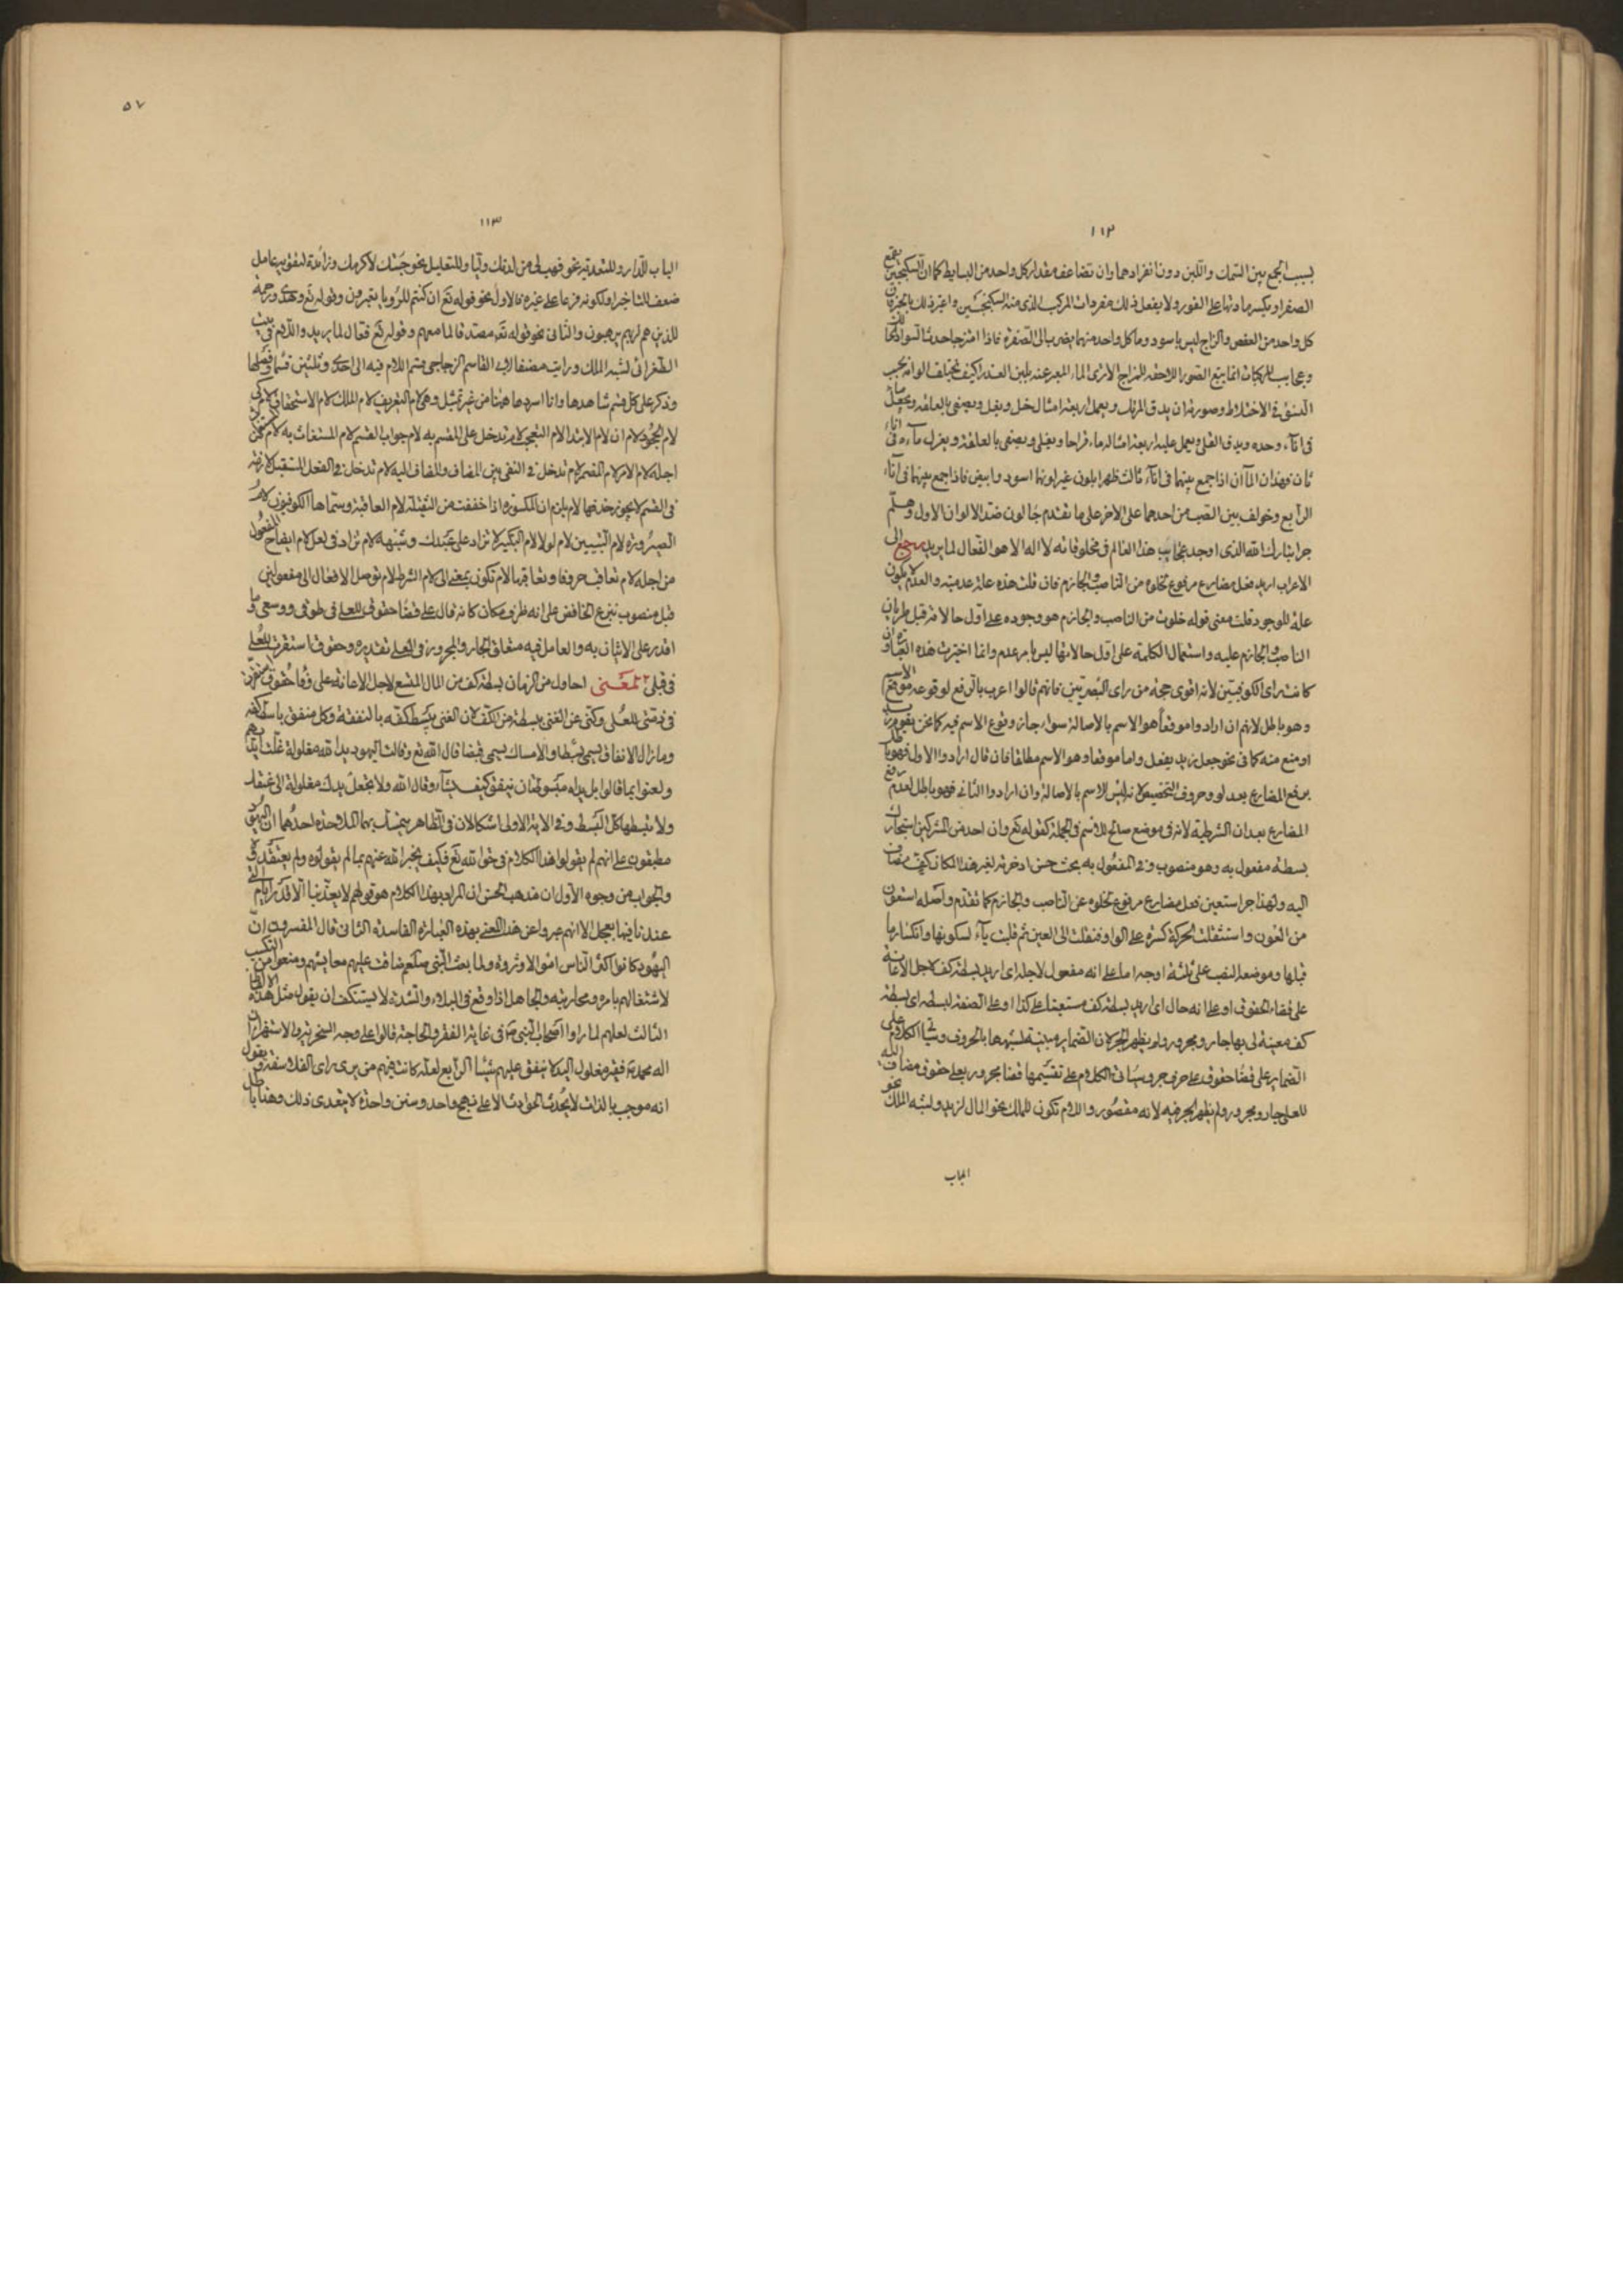 ١١٢
بسبب الجمع بين السمك واللبن دون انفرادهما وان تضاعف مقدار كل واحد من البسايط كما ان السكنجبين يقمع
الصفرا ويكسر مادتها على الفور ولا يفعل ذلك مفردات المركب الذى منه السكنجبين واعتبر ذلك بالحبر فان
كل واحد من العفص والزاج ليس باسود وما كل واحد منهما يضرب الى الصفرة فاذا امتزجا حدث السواد
وعجايب المركبات انما يتبع الصور اللاحقة للمزاج الا ترى الماء المعبر عنه بلبن العذرا كيف تختلف الوانه بحسب
النسق فى الاختلاط وصورته ان يدق المرتك ويعمل اربعة امثاله خل ويغلى ويصفى بالعلقه ويجعل
فى اناء وحده ويدق القلى ويعمل عليه اربعة امثاله ماء قراحا ويغلى ويصفى بالعلقة ويعزل ماءه فى اناء
ثان فهذان الماآن اذا جمع بينهما فى اناء ثالث ظهرا بلون غير لونهما اسود وابيض فاذا جمع بينهما فى اناء
الرابع وخولف بين الصب من احدهما على الاخر على ما تقدم جا لون ضد الالوان الاول وهلم
جرا تبارك الله الذى اوجد عجايب هذا العالم فى مخلوقاته لا اله الا هو الفعال لما يريد رجع الى
الاعراب اريد فعل مضارع مرفوع لخلوه من الناصب والجازم فان قلت هذه علة عدمية والعدم لا يكون
علة للوجود قلت معنى قوله خلوت من الناصب والجازم هو وجوده على اول حالاته قبل طريان
الناصب والجازم عليه واستعمال الكلمة على اول حالاتها ليس بامر عدم وانما اخترت هذه العبارة وان
كانت راى الكوفيين لانه اقوى حجة من راى البصريين فانهم قالوا اعرب بالرفع لوقوعه موقع الاسم
وهو باطل لانهم ان ارادوا موقعا هو الاسم بالاصالة سواء جاز وقوع الاسم فيه كما نحن يقوم زيد
او منع منه كما فى نحو جعل زيد يفعل واما موقعا وهو الاسم مطلقا فان قال ارادوا الاول فهو باطل
برفع المضارع بعد لو وحروف التحضيض لانه ليس للاسم بالاصالة وان ارادوا الثانى فهو باطل لعدم رفع
المضارع بعد ان الشرطية لانه فى موضع صالح للاسم فى الجملة كقوله تع وان احد من المشركين استجارك
بسطة مفعول به وهو منصوب وفى المفعول به بحث حسن ادخرته لغير هذا المكان كف مضاف
اليه ولهذا جر استعين فعل مضارع مرفوع لخلوه عن الناصب والجازم كما تقدم واصله استعون
من العون واستثقلت الحركة كسرة على الواو فنقلت الى العين ثم قلبت ياء لسكونها وانكسار ما
قبلها وموضعها النصب على ثلثة اوجه اما على انه مفعول لاجله اى اريد بسطة كف لاجل الاعانة
على قضاء الحقوق او على انه حال اى اريد بسطة كف مستعينا على كذا او على الصفة لبسطة اى بسطة
كف معينة لى بها جار ومجرور ولم يظهر الجر لان الضماير مبنية لشبهها بالحروف وياتى الكلام على
الضماير على قضا حقوق على حرف جر وسياتى الكلام على تقسيمها قضا مجرور بعلى حقوق مضاف اليه
للعلى جار ومجرور ولم يظهر الجر فيه لانه مقصور واللام تكون للملك نحو المال لزيد ولشبه الملك نحو
الباب
٥٧
١١٣
الباب للدار وللتعدية نحو فهب لى من لدنك وليا وللتعليل نحو جئتك لاكرمك وزائدة لتقوية عامل
ضعف للتاخير او لكونه فرعا على غيره فالاول نحو قوله تع ان كنتم للرويا تعبرون وقوله تع وهدى ورحمة
للذين هم لربهم يرهبون والثانى نحو قوله تع مصدقا لما معهم وقوله تع فعال لما يريد واللام فى بيت
الطغرائى لشبه الملك ورايت مصنفا لابى القاسم الزجاجى قسم اللام فيه الى احدى وثلثين قسما وفصلها
وذكر على كل قسم شاهدها وانا اسردها هيهنا من غير تمثيل وهى لام التعريف لام الملك لام الاستحقاق لام كى
لام الجحود لام ان لام الابتدا لام التعجب لام تدخل على المقسم به لام جواب القسم لام المستغاث به لام
اجله لام الامر لام المضمر لام تدخل فى النفى بين المضاف والمضاف اليه لام تدخل فى الفعل المستقبل لازمة
فى القسم لا يجوز حذفها لام يلزم ان المكسورة اذا خففت من الثقيلة لام العاقبة وسماها الكوفيون لام
الصيرورة لام التبيين لام لولا لام التكثير لا تزاد على عبدك وشبهه لام تزاد فى لعل لام ايضاح المفعول
من اجله لام تعاقب حروفا وتعاقبها لام تكون بمعنى الى لام الشرط لام توصل الافعال الى مفعولين
قبل منصوب بنزع الخافض على انه ظرف مكان كانه قال على قضا حقوق للعلى فى طوقى ووسعى وما
اقدر على الاتيان به والعامل فيه متعلق الجار والمجرور فى للعلى تقديره وحقوق استقرت للعلى
فى قبلى المعنى احاول من الزمان بسطة كف من المال المتسع لاجل الاعانة على وفا حقوق استقرت
فى ذمتى للعلى وكنى عن الغنى ببسطة من الكف لان الغنى يبسط كفه بالنفقة وكل منفق باسط كفه
وما زال الانفاق يسمى بسطا والامساك يسمى قبضا قال الله تع وقالت اليهود يد الله مغلولة غلت ايديهم
ولعنوا بما قالوا بل يداه مبسوطتان ينفق كيف يشآء وقال الله ولا تجعل يدك مغلولة الى عنقك
ولا تبسطها كل البسط وفى الاية الاولى اشكالان فى الظاهر يتمسك بهما الملاحدة احدهما ان اليهود
مطبقون على انهم لم يقولوا هذا الكلام فى حق الله تع فكيف يخبر الله عنهم بما لم يقولوه ولم يعتقدوه
والجواب من وجوه الاول ان مذهب الحسن ان المراد بهذا الكلام هو قولهم لا يعذبنا الا قدر ايام التى
عندنا فيها العجل الا انهم عبروا عن هذا المعنى بهذه العبارة الفاسدة الثانى قال المفسرون ان
اليهود كانوا اكثر الناس اموالا وثروة ولما بعث النبى صلعم ضاقت عليهم معايشهم ومنعوا من التكسب
لاشتغالهم بامره ومحاربته والجاهل اذا وقع فى البلاء والشدة لا يستنكف ان يقول مثل هذه الالفاظ
الثالث لعلهم لما راوا اصحاب النبى فى غاية الفقر والحاجة قالوا على وجه السخرية والاستهزاء ان
اله محمد فقير مغلول اليد لا ينفق عليهم شيئا الرابع لعله كانت فيهم من يرى راى الفلاسفة ويقول
انه موجب بالذات لا يحدث الحوادث الا على نهج واحد وسنن واحدة لا يتعدى ذلك وهذا باطل